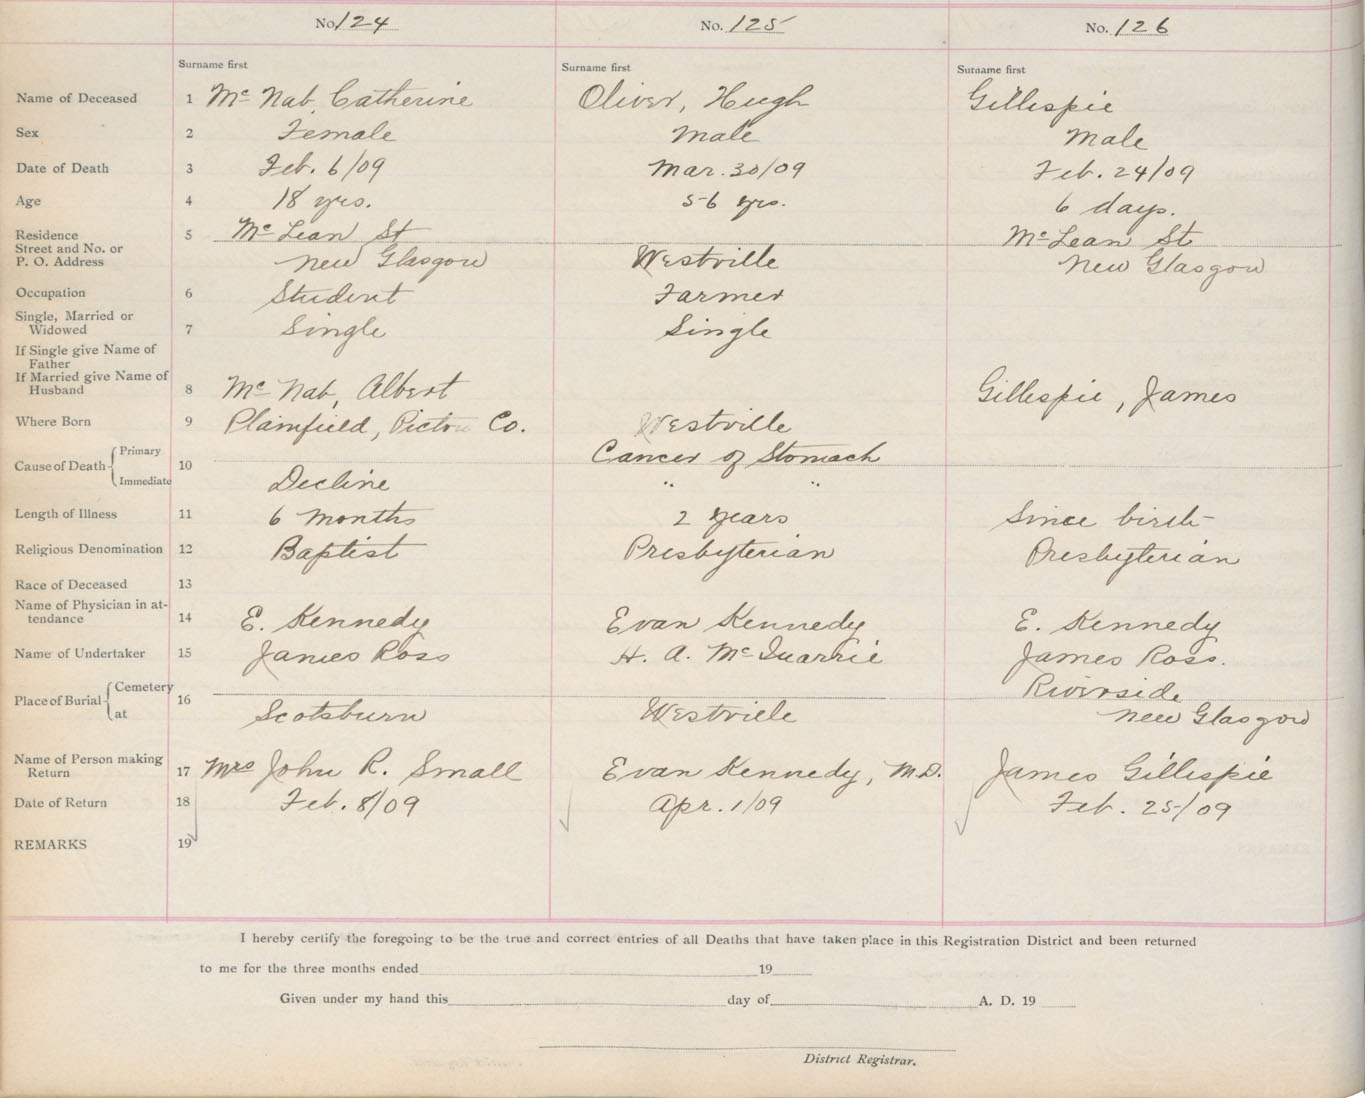 No. 124 No. 125 No. 126
Surname first Surname first Surname first
Name of Deceased 1 Mc Nab, Catherine Oliver, Hugh Gillespie
Sex 2 Female Male Male
Date of Death 3 Feb. 6/09 Mar. 30/09 Feb. 24/09
Age 4 18 yrs. 56 yrs. 6 days.
Residence 5 Mc Lean St Mc Lean St
Street and No. or
P. O. Address New Glasgow Westville New Glasgow
Occupation 6 Student Farmer
Single, Married or
Widowed 7 Single Single
If Single give Name of
Father
If Married give Name of
Husband 8 Mc Nab, Albert Gillespie, James
Where Born 9 Plainfield, Pictou Co. Westville
Cause of Death Primary 10 Cancer of Stomach
Immediate Decline " "
Length of Illness 11 6 months 2 years Since birth
Religious Denomination 12 Baptist Presbyterian Presbyterian
Race of Deceased 13
Name of Physician in at-
tendance 14 E. Kennedy Evan Kennedy E. Kennedy
Name of Undertaker 15 James Ross H. A. McQuarrie James Ross.
Place of Burial Cemetery 16 Riverside
at Scotsburn Westville New Glasgow
Name of Person making
Return 17 Mrs John R. Small Evan Kennedy, M.D. James Gillespie
Date of Return 18 Feb. 8/09 Apr. 1/09 Feb. 25/09
REMARKS 19
I hereby certify the foregoing to be the true and correct entries of all Deaths that have taken place in this Registration District and been returned
to me for the three months ended 19
Given under my hand this day of A. D. 19
District Registrar.